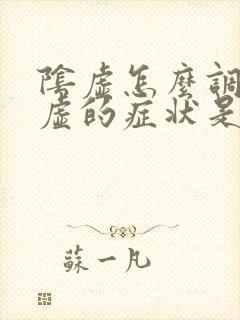 陰虛怎麼調
虛的症狀是
蘇一凡